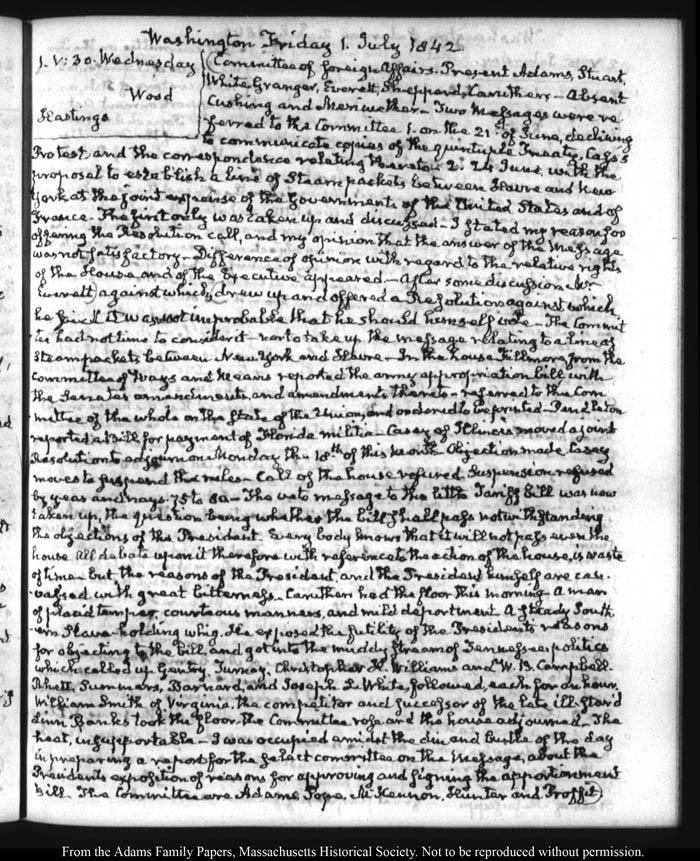 Washington Friday 1. July 1842.
1. V:30. Wednesday
Wood
Hastings
Committee of foreign Affairs. Present Adams, Stuart,
White, Granger, Everett, Shepperd, Caruthers - Absent
Cushing and Meriwether - Two Messages were re-
ferred to the Committee 1. on the 21st of June, declining
to communicate copies of the quintuple Treaty, Cass's
Protest and the correspondence relating thereto - 2. 24 June, with the
proposal to establish a line of Steam packets between Havre and New
York at the joint expense of the Governments of the United States and of
France - The first only was taken up and discussed - I stated my reason for
offering the Resolution call, and my opinion that the answer of the Message
was not satisfactory - Difference of opinion with regard to the relative rights
of the House, and of the Executive appeared - After some discussion Mr
Everett) against which (drew up and offered a Resolution against which
he said it was not improbable that he should himself vote - The Commit
tee had not time to consider it - nor to take up the message relating to a line of
Steam packets between New York and Havre - In the house Fillmore from the
Committee of Ways and Means reported the army appropriation bill with
the Senate's amendments, and amendments thereto - referred to the Com-
mittee of the whole on the State of the Union, and ordered to be printed -
reported a Bill for payment of Florida militia - Casey of Illinois moved a joint
Resolution to adjourn on Monday the 18th of this month - Objection made Casey
moves to suspend the rules - Call of the house refused. Suspension refused
by yeas and nays. 75 to 80 - The veto message to the little Tariff Bill was now
taken up, the question being whether the bill shall pass notwithstanding
the objections of the President. Every body knows that it will not pass even the
house. All debate upon it therefore with reference to the action of the house, is waste
of time - but the reasons of the President, and the President himself are can-
vassed with great bitterness - Caruthers had the floor this morning - A man
of placid temper, courteous manners, and mild deportment. A steady South-
ern Slave-holding whig. He exposed the futility of the Presidents reasons
for objecting to the bill, and got into the muddy stream of Tennessee politics
which called up Gentry, Turney, Christopher H. Williams and W. B. Campbell -
Rhett, Summers, Barnard, and Joseph L. White, followed, each for an hour.
William Smith of Virginia, the competitor and successor of the late ill-starr'd
Linn Banks took the floor. The Committee rose and the house adjourned - The
heat, insupportable - I was occupied amidst the din and bustle of the day
in preparing a report for the select committee on the Message, about the
Presidents exposition of reasons for approving and signing the apportionment
bill. The Committee are Adams, Pope, McKennon, Hunter and Proffit)
From the Adams Family Papers, Massachusetts Historical Society. Not to be reproduced without permission.